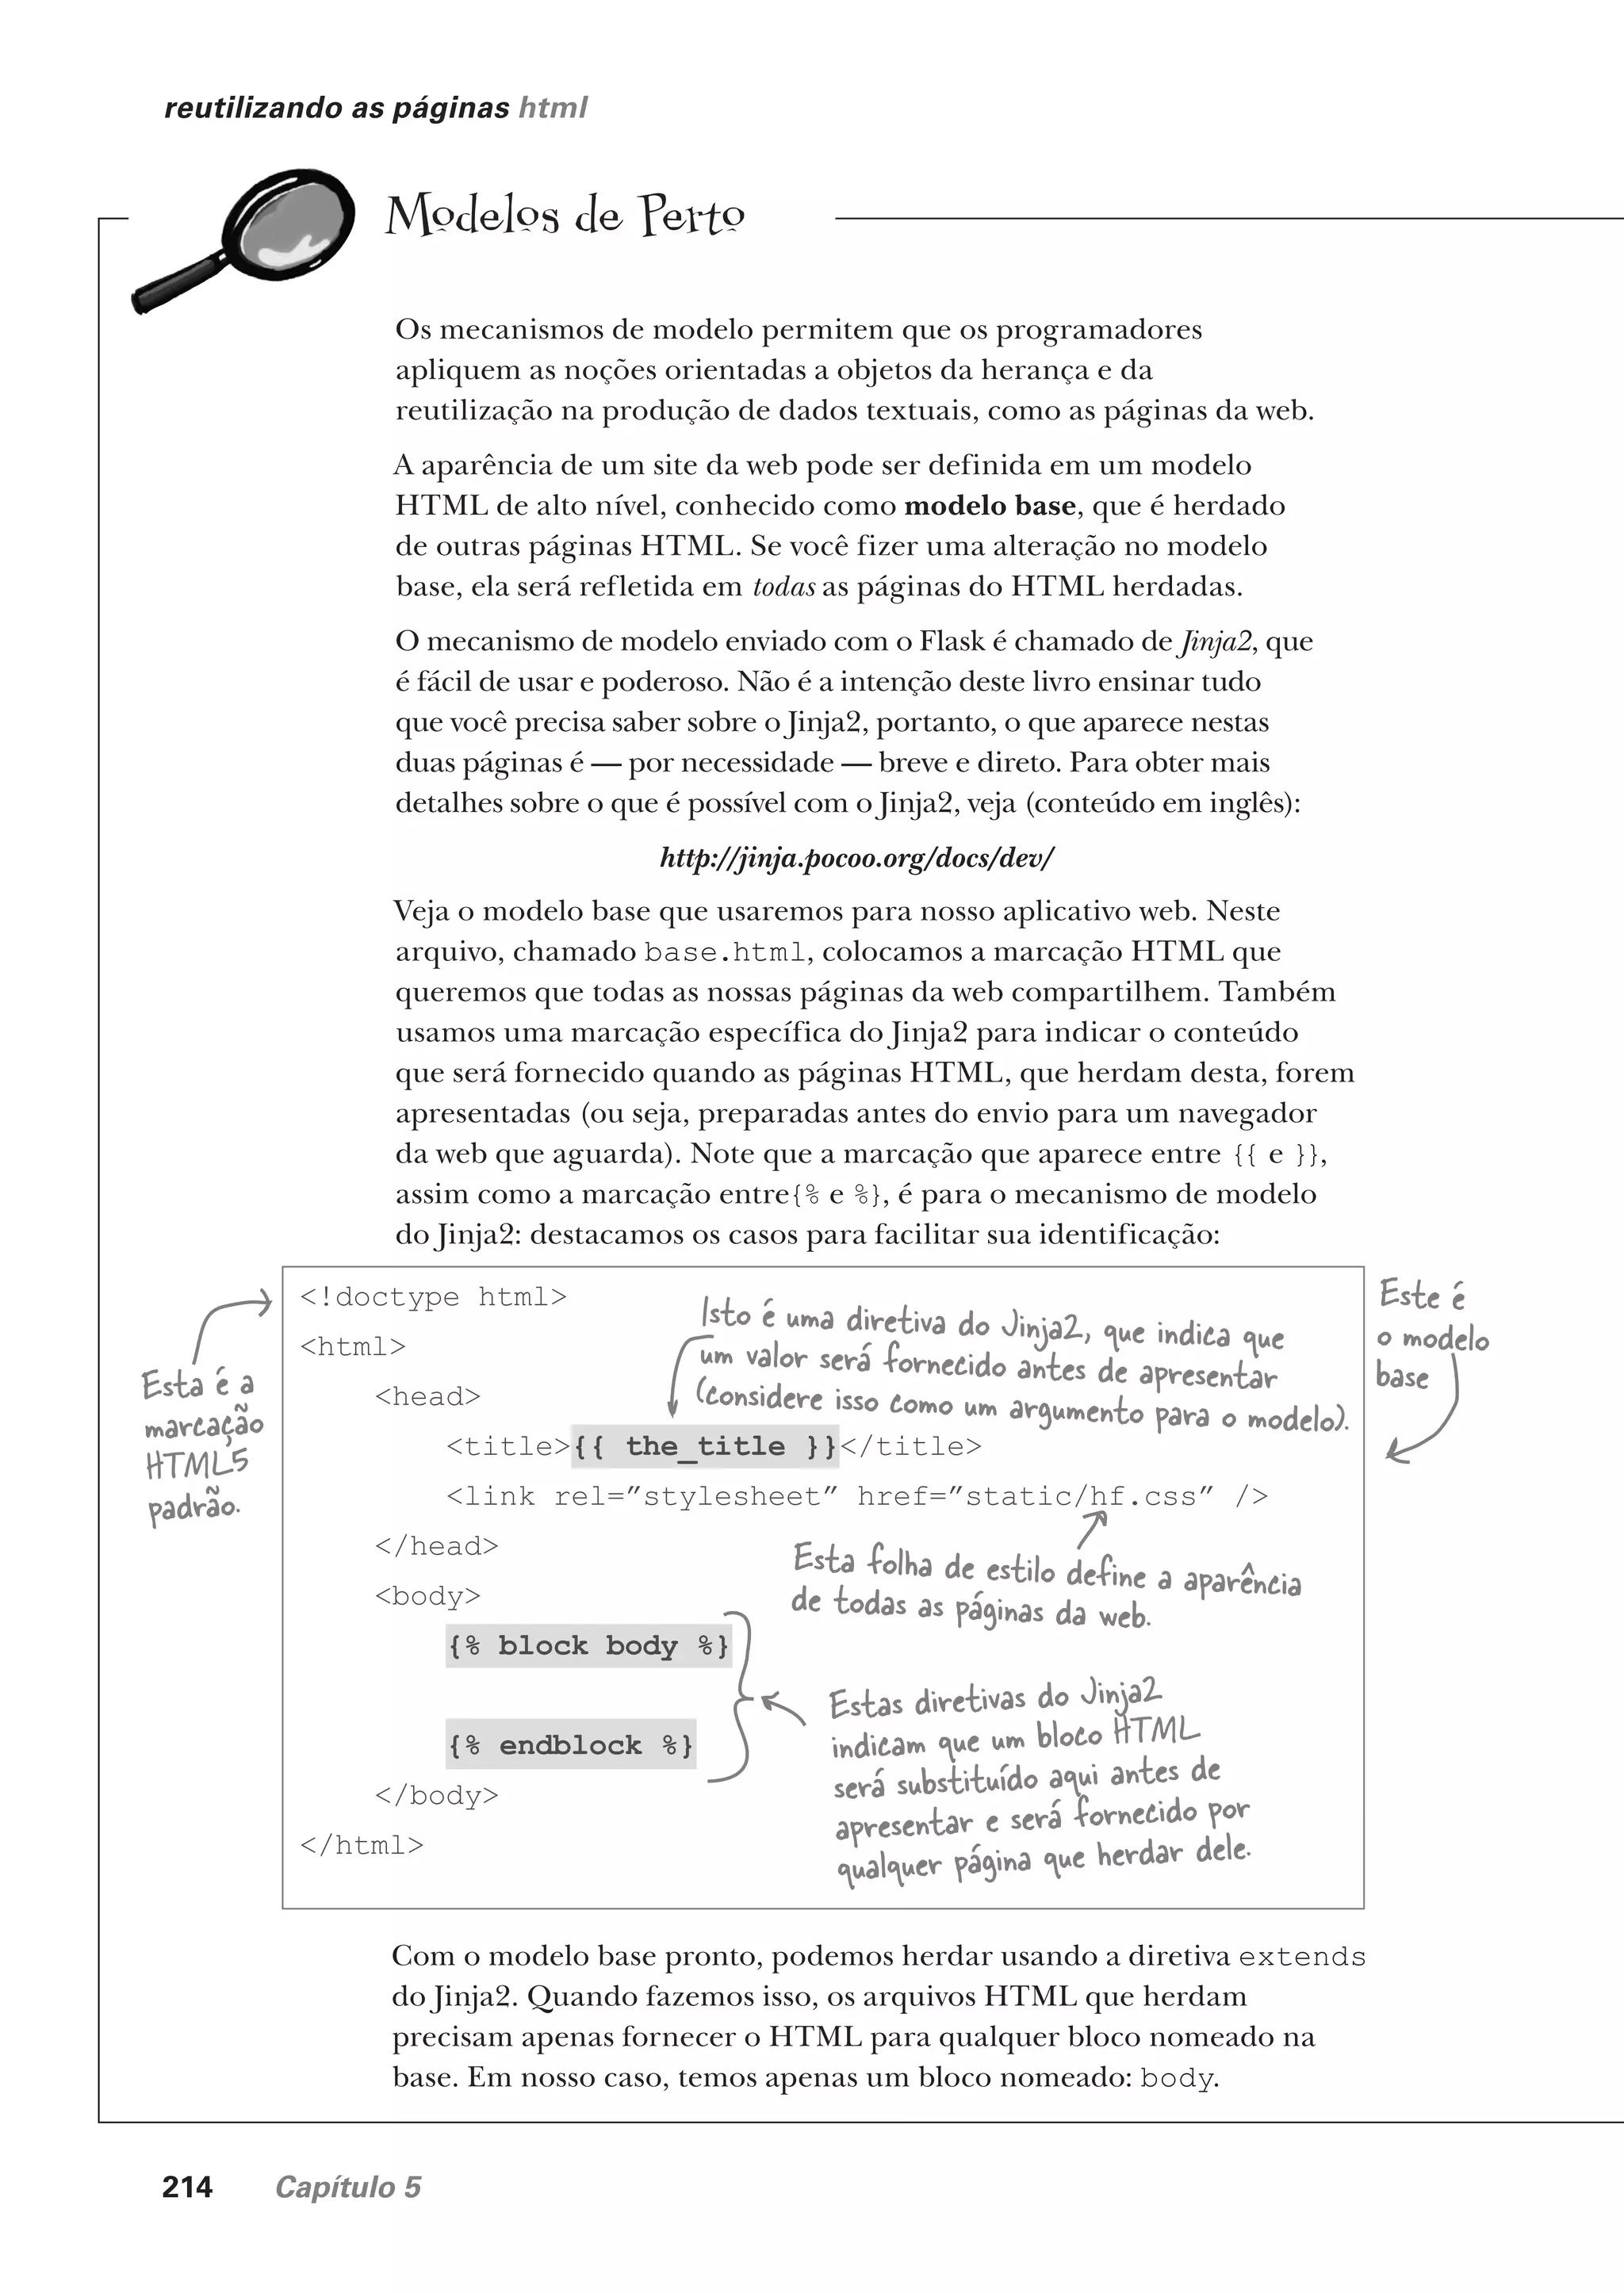 reutilizando as páginas html
Modelos de Perto
Os mecanismos de modelo permitem que os programadores
apliquem as noções orientadas a objetos da herança e da
reutilização na produção de dados textuais, como as páginas da web.
A aparência de um site da web pode ser definida em um modelo
HTML de alto nível, conhecido como modelo base, que é herdado
de outras páginas HTML. Se você fizer uma alteração no modelo
base, ela será refletida em todas as páginas do HTML herdadas.
O mecanismo de modelo enviado com o Flask é chamado de Jinja2, que
é fácil de usar e poderoso. Não é a intenção deste livro ensinar tudo
que você precisa saber sobre o Jinja2, portanto, o que aparece nestas
duas páginas é — por necessidade — breve e direto. Para obter mais
detalhes sobre o que é possível com o Jinja2, veja (conteúdo em inglês):
http://jinja.pocoo.org/docs/dev/
Veja o modelo base que usaremos para nosso aplicativo web. Neste
arquivo, chamado base.html, colocamos a marcação HTML que
queremos que todas as nossas páginas da web compartilhem. Também
usamos uma marcação específica do Jinja2 para indicar o conteúdo
que será fornecido quando as páginas HTML, que herdam desta, forem
apresentadas (ou seja, preparadas antes do envio para um navegador
da web que aguarda). Note que a marcação que aparece entre {{ e }},
assim como a marcação entre{% e %}, é para o mecanismo de modelo
do Jinja2: destacamos os casos para facilitar sua identificação:
Esta é a
marcação
HTML5
padrão.
<!doctype html>
<html>
<head>
<title>{{ the_title }}</title>
<link rel=”stylesheet” href=”static/hf.css” />
</head>
<body>
{% block body %}
{% endblock %}
</body>
</html>
Isto é uma diretiva do Jinja2, que indica que
um valor será fornecido antes de apresentar
(considere isso como um argumento para o modelo).
Este é
o modelo
base
Esta folha de estilo define a aparência
de todas as páginas da web.
Estas diretivas do Jinja2
indicam que um bloco HTML
será substituído aqui antes de
apresentar e será fornecido por
qualquer página que herdar dele.
Com o modelo base pronto, podemos herdar usando a diretiva extends
do Jinja2. Quando fazemos isso, os arquivos HTML que herdam
precisam apenas fornecer o HTML para qualquer bloco nomeado na
base. Em nosso caso, temos apenas um bloco nomeado: body.
214 Capítulo 5